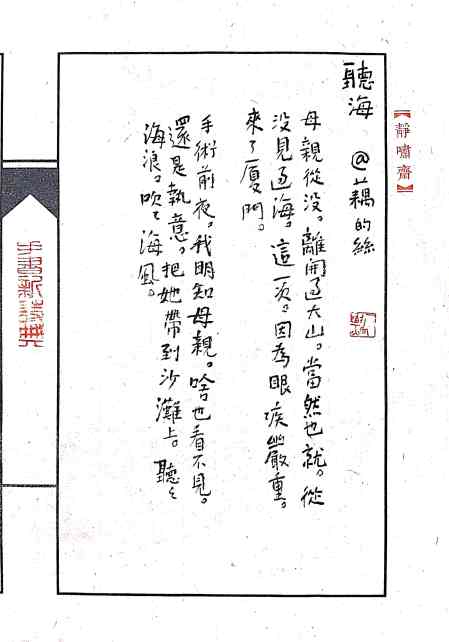 【靜嘯齋】
聽海 @藕的絲
母親從没。離開过大山。當然也就。從
没見过海。這一次。因為眼疾嚴重。
來了廈門。
手術前夜。我明知母親。啥也看不見。
還是執意。把她帶到沙灘上。聽〻
海浪。吹〻海風。